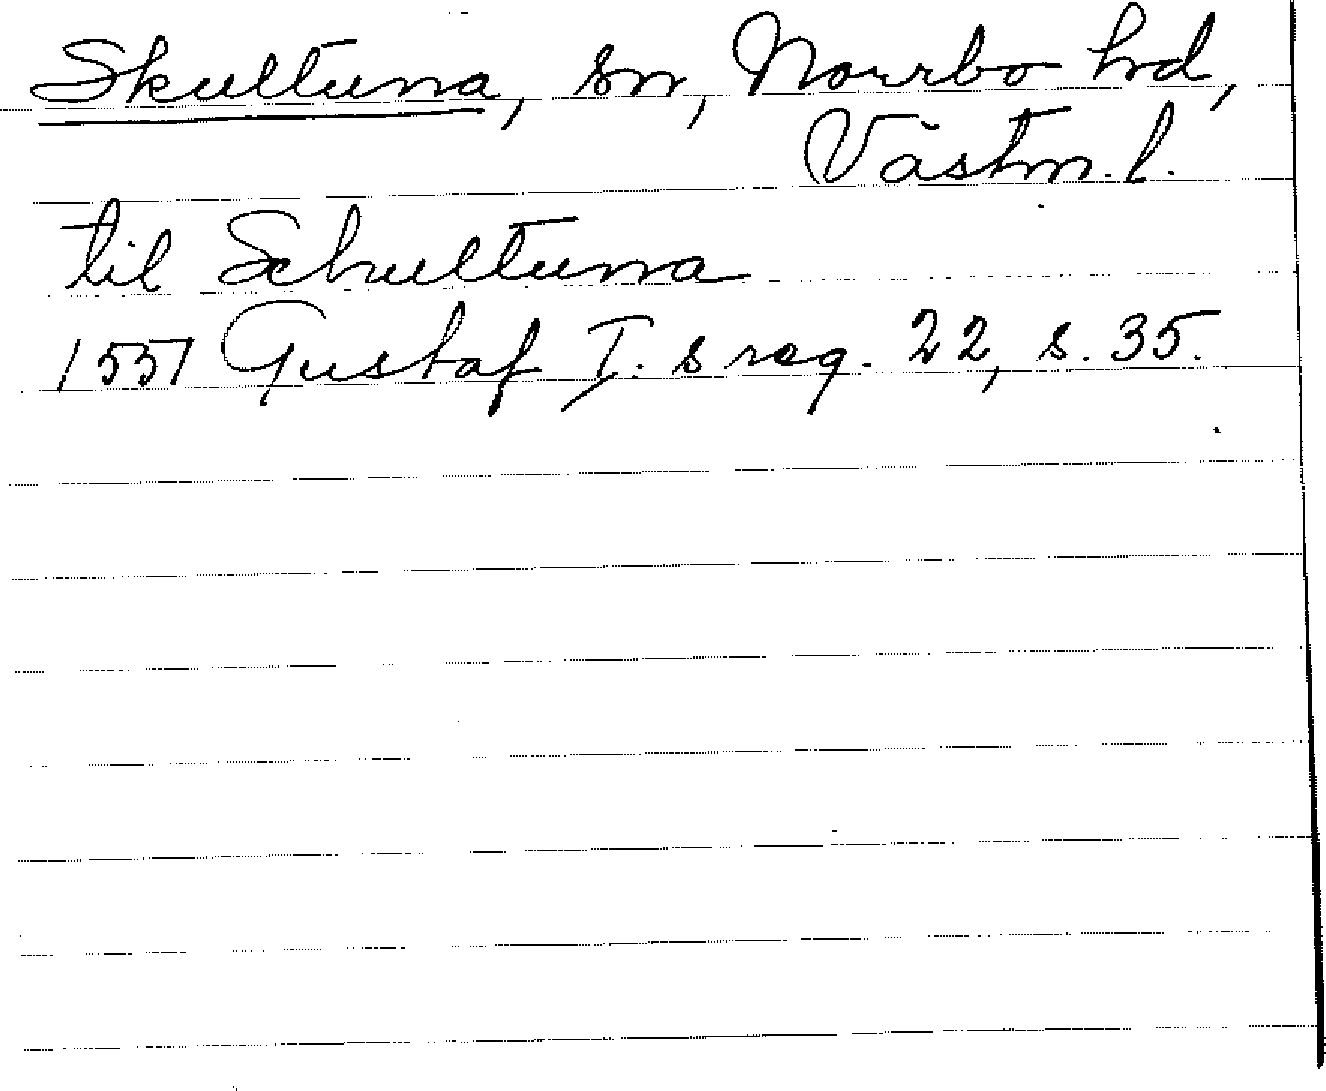 Skultuna, sn, Norrbo hd,
Västm. l.
til Schultuna
1551 Gustaf I:s reg. 22, s. 35.